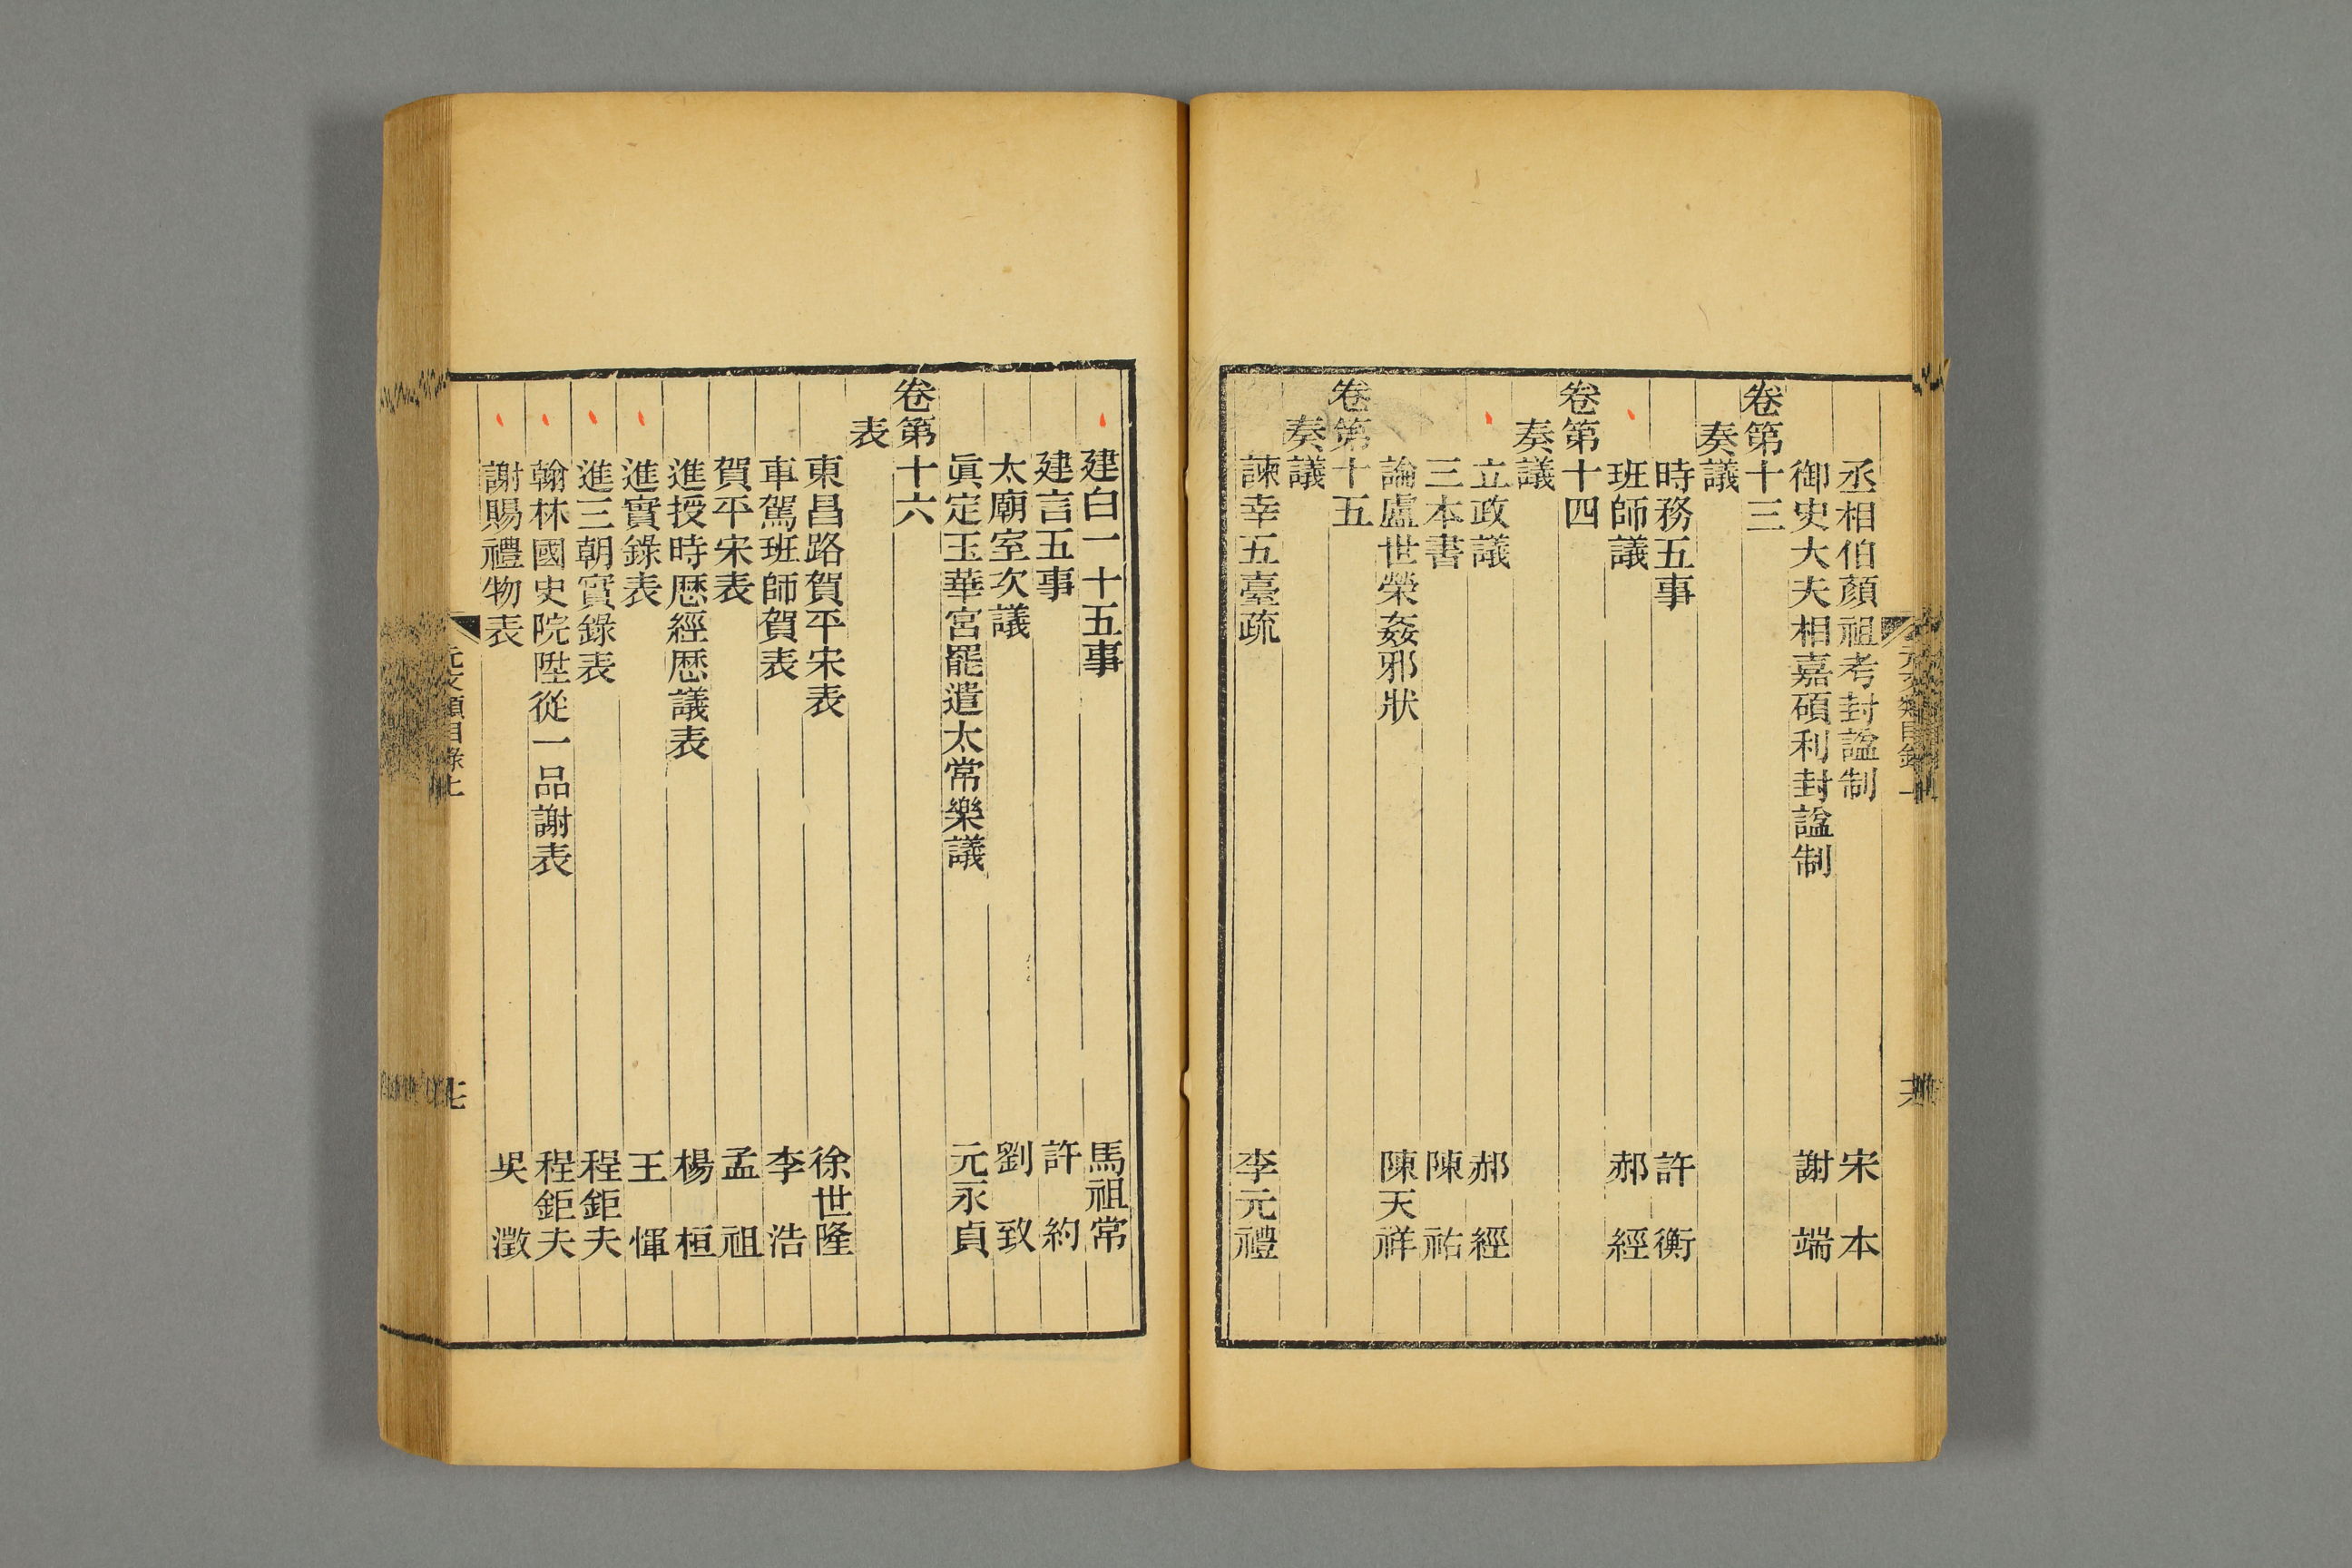 丞相伯顏祖考封諡制 宋 本
御史大夫相嘉碩利封諡制 謝 端
卷第十三
奏議
時務五事 許 衡
班師議 郝 經
卷第十四
奏議
立政議 郝 經
三本書 陳 祐
論盧世榮姦邪狀 陳天祥
卷第十五
奏議
諫幸五臺疏 李元禮
建白一十五事 馬祖常
建言五事 許 約
太廟室次議 劉 致
眞定玉華宮罷遣太常樂議 元永貞
卷第十六
表
東昌路賀平宋表 徐世隆
車駕班師賀表 李 浩
賀平宋表 孟 祺
進授時厯經厯議表 楊 桓
進實錄表 王 惲
進三朝實錄表 程鉅夫
翰林國史院陞從一品謝表 程鉅夫
謝賜禮物表 吳 澂
元文類目錄上
七